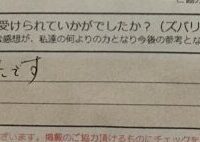 受けられていかがでしたか？（ズバリ
感想が、私達の何よりの力となり今後の参考とな
たです
ざいます。掲載のご協力頂けるものにチェックを